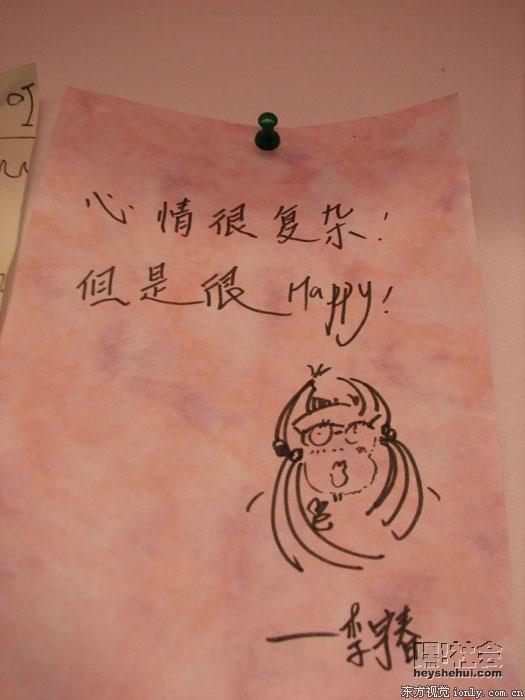 心情很复杂!
但是很Happy!
—李宇春
黑社会
heyshehui.com
东方视觉 ionly.com.cn